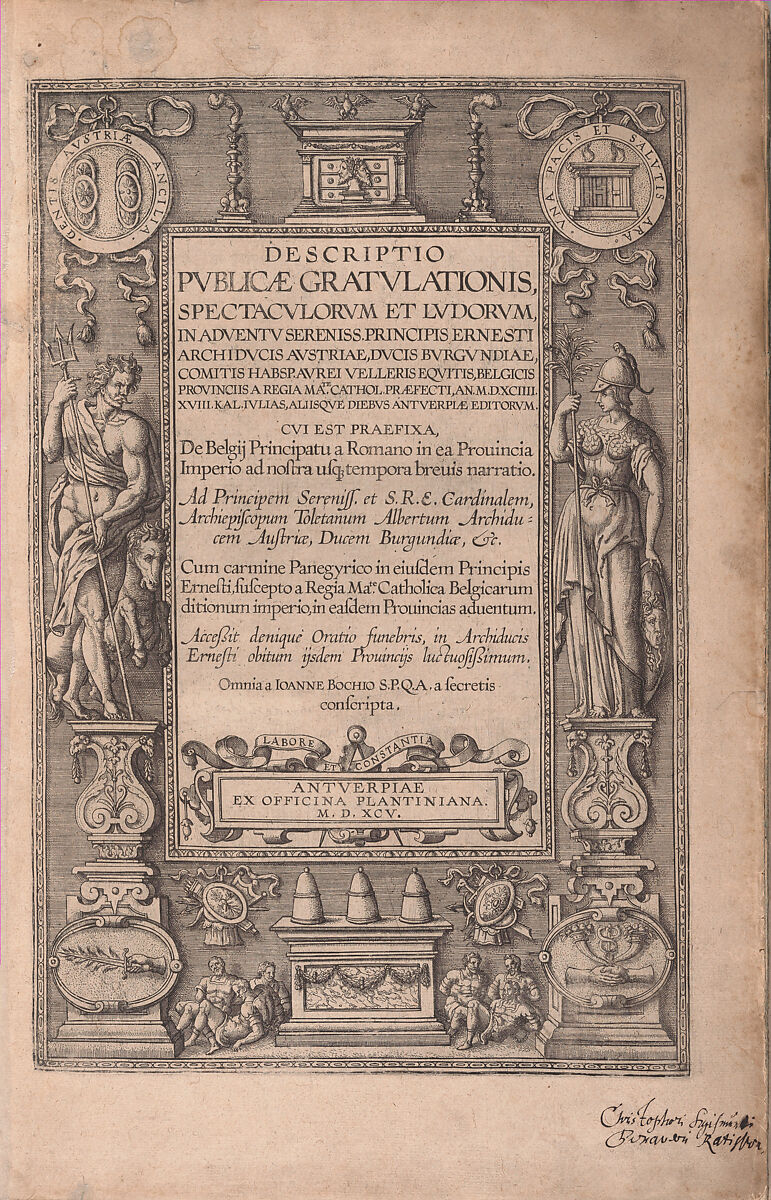 GENTIS AVSTRIÆ ANCILIA.
VNA PACIS ET SALVTIS ARA.
DESCRIPTIO
PVBLICÆ GRATVLATIONIS,
SPECTACVLORVM ET LVDORVM,
IN ADVENTV SERENISS. PRINCIPIS ERNESTI
ARCHIDVCIS AVSTRIAE, DVCIS BVRGVNDIAE,
COMITIS HABSP. AVREI VELLERIS EQVITIS, BELGICIS
PROVINCIIS A REGIA MA.TE CATHOL. PRÆFECTI, AN. M.D.XCIIII.
XVIII. KAL. IVLIAS, ALIISQVE DIEBVS ANTVERPIÆ EDITORVM.
CVI EST PRAEFIXA,
De Belgij Principatu a Romano in ea Prouincia
Imperio ad nostra usq; tempora breuis narratio.
Ad Principem Sereniss. et S.R.E. Cardinalem,
Archiepiscopum Toletanum Albertum Archidu-
cem Austriæ, Ducem Burgundiæ, &c.
Cum carmine Panegyrico in eiusdem Principis
Ernesti, suscepto a Regia Ma.te Catholica Belgicarum
ditionum imperio, in easdem Prouincias aduentum.
Accessit denique Oratio funebris, in Archiducis
Ernesti obitum ijsdem Prouincijs luctuosissimum.
Omnia a IOANNE BOCHIO S.P.Q.A. a secretis
conscripta.
LABORE ET CONSTANTIA
ANTVERPIAE
EX OFFICINA PLANTINIANA.
M. D. XCV.
Christophori